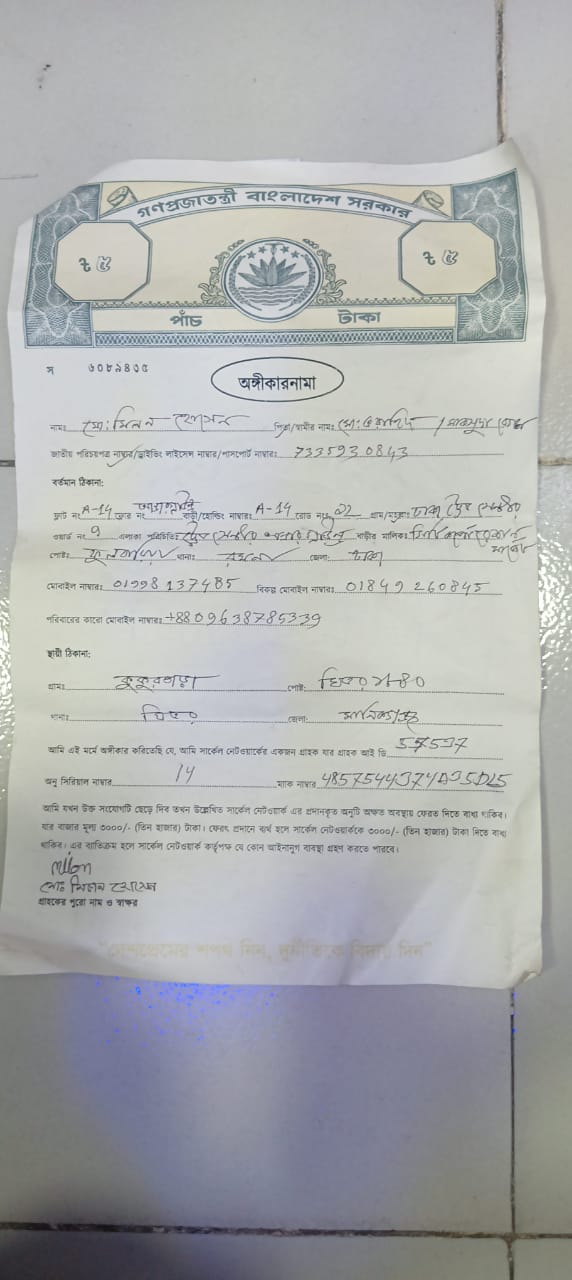 গণপ্রজাতন্ত্রী বাংলাদেশ সরকার
৳ ৫ ৳ ৫
পাঁচ টাকা
স ৬০৮৯৪৩৫
অঙ্গীকারনামা
নামঃ মো: মিলন হোসেন পিতা/স্বামীর নামঃ মো: ওয়াহিদ /
জাতীয় পরিচয়পত্র নাম্বার/ড্রাইভিং লাইসেন্স নাম্বার/পাসপোর্ট নাম্বারঃ 7335930843
বর্তমান ঠিকানা:
ফ্লাট নং A-14 ফ্লোর নং বাড়ী/হোল্ডিং নাম্বারঃ A-14 রোড নং গ্রাম/মহল্লাঃ ঢাকা ট্রেড সেন্টার
ওয়ার্ড নং এলাকা পরিচিতি ট্রেড সেন্টার বাড়ীর মালিকঃ
পোষ্টঃ থানাঃ জেলা: ঢাকা
মোবাইল নাম্বারঃ 01998137485 বিকল্প মোবাইল নাম্বারঃ 01849260845
পরিবারের কারো মোবাইল নাম্বারঃ +8809638785339
স্থায়ী ঠিকানা:
গ্রামঃ কুকুরপাড়া পোষ্ট: ঘিওর
থানাঃ ঘিওর জেলা: মানিকগঞ্জ
আমি এই মর্মে অঙ্গীকার করিতেছি যে, আমি সার্কেল নেটওয়ার্কের একজন গ্রাহক যার গ্রাহক আই ডি 57537
অনু সিরিয়াল নাম্বার 14 ম্যাক নাম্বার
আমি যখন উক্ত সংযোগটি ছেড়ে দিব তখন উল্লেখিত সার্কেল নেটওয়ার্ক এর প্রদানকৃত অনুটি অক্ষত অবস্থায় ফেরত দিতে বাধ্য থাকিব।
যার বাজার মূল্য ৩০০০/- (তিন হাজার) টাকা। ফেরৎ প্রদানে ব্যর্থ হলে সার্কেল নেটওয়ার্ককে ৩০০০/- (তিন হাজার) টাকা দিতে বাধ্য
থাকিব। এর ব্যতিক্রম হলে সার্কেল নেটওয়ার্ক কর্তৃপক্ষ যে কোন আইনানুগ ব্যবস্থা গ্রহণ করতে পারবে।
Milon
মোঃ মিলন হোসেন
গ্রাহকের পুরো নাম ও স্বাক্ষর
"দেশপ্রেমের শপথ নিন, দুর্নীতিকে বিদায় দিন"